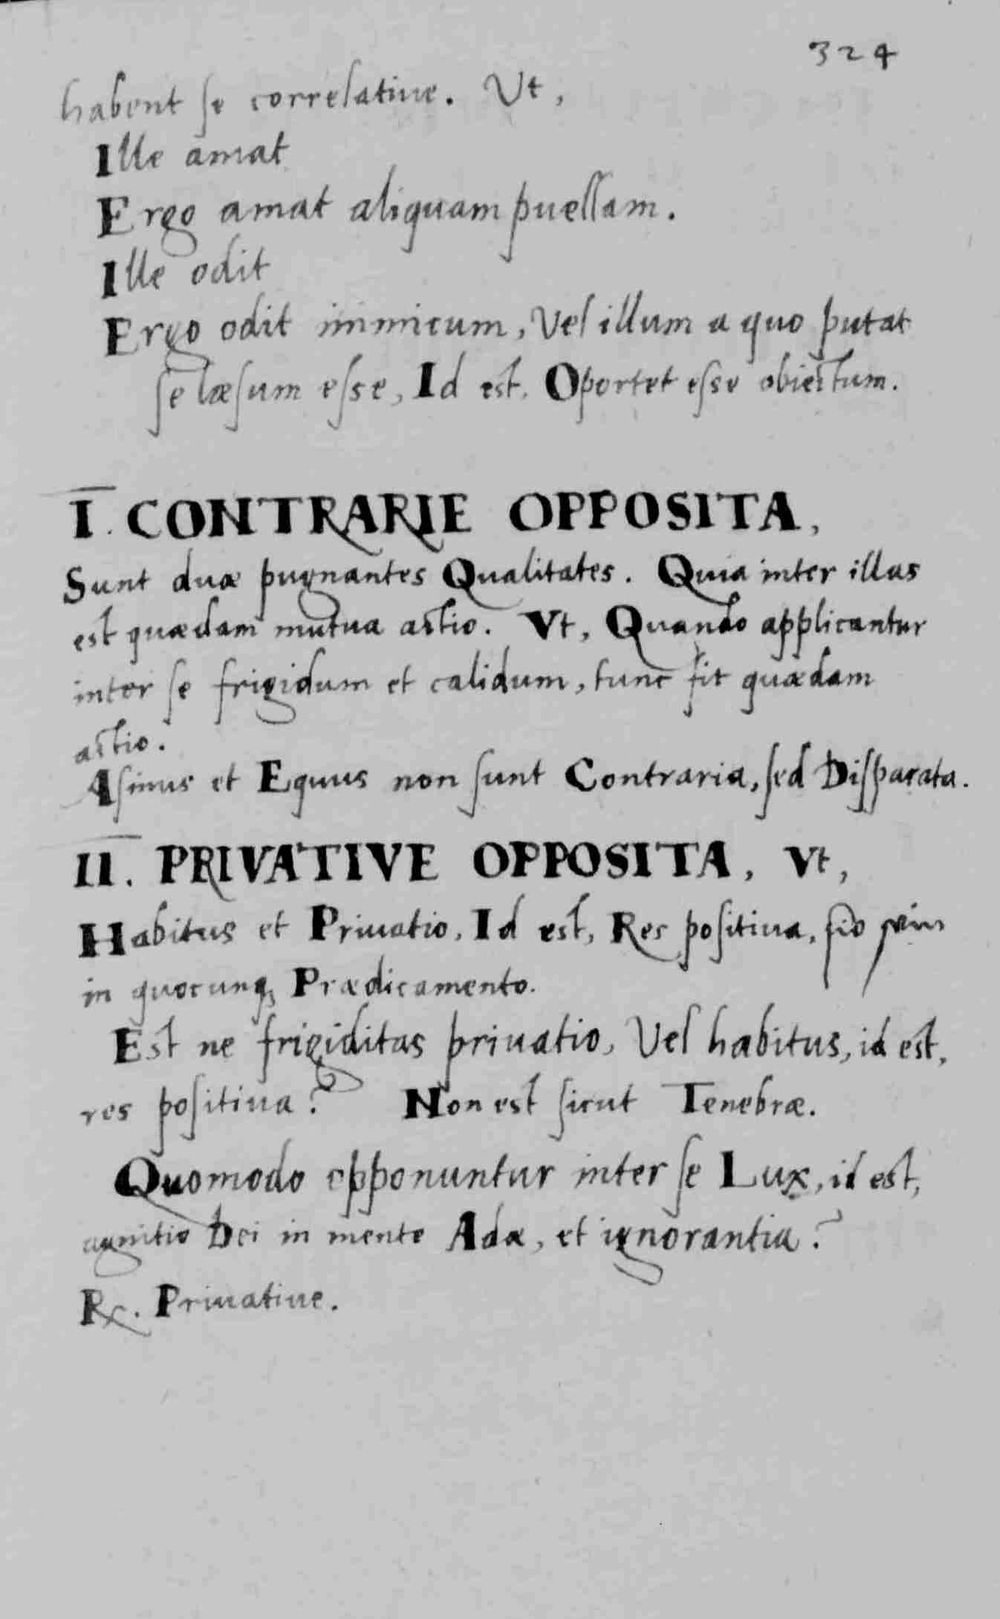 324
habent se correlatiue. Vt,
Ille amat
Ergo amat aliquam puellam.
Ille odit
Ergo odit inimicum, Vel illum a quo putat
se læsum esse, Id est, Oportet esse obiectum.
I. CONTRARIE OPPOSITA,
Sunt duæ pugnantes Qualitates. Quia inter illas
est quædam mutua actio. Vt, Quando applicantur
inter se frigidum et calidum, tunc fit quædam
actio.
Asinus et Equus non sunt Contraria, sed Disparata.
II. PRIVATIVE OPPOSITA, Vt,
Habitus et Priuatio, Id est, Res positiua,
in quocunq; Prædicamento.
Est ne frigiditas priuatio, Vel habitus, id est,
res positiua? Non est sicut Tenebræ.
Quomodo opponuntur inter se Lux, id est,
agnitio Dei in mente Adæ, et ignorantia?
R. Priuatiue.